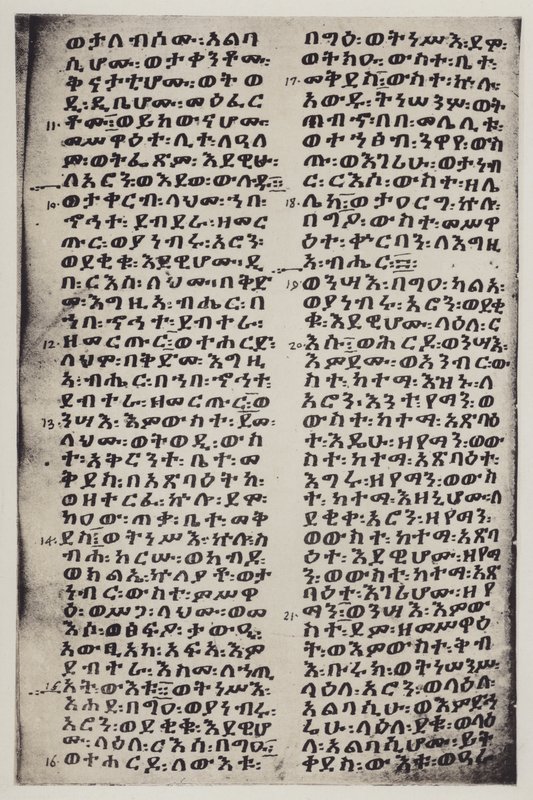 ወታለብሶሙ፡አልባ
ሲሆሙ፡ወታቀንቶሙ፡
ቅናታቲሆሙ፡ወትወ
ዲ፡ዲቤሆሙ፡መዕፈር
11. ቶሙ፡ወይከውኖሙ፡
መሥዋዕተ፡ሊተ፡ለዓለ
ም፡ወትፌጽም፡እደዊሁ፡
ለአሮን፡ወእደወ፡ውሉዱ፡
10. ወታቀርብ፡ላህመ፡ኀበ፡
ኆኅተ፡ደብተራ፡ዘመር
ጡር፡ወያነብሩ፡አሮን፡
ወደቂቁ፡እደዊሆሙ፡ዲ
በ፡ርእሰ፡ላህሙ፡በቅድ
መ፡እግዚአ፡ብሔር፡በ
ኀበ፡ኆኅተ፡ደብተራ፡
12. ዘመርጡር፡ወተሐርዶ፡
ላህሞ፡በቅድመ፡እግዚ
አ፡ብሔር፡በኀበ፡ኆኅተ፡
ደብተራ፡ዘመርጡር፡ወ
13. ንሣእ፡እምውስተ፡ደመ፡
ላህሙ፡ወትወዲ፡ውስ
ተ፡አቅርንተ፡ቤተ፡መ
ቅደስ፡በአጽባዕትከ፡
ወዘተርፈ፡ኵሉ፡ደሞ፡
ክዐው፡ጠቃ፡ቤተ፡መቅ
14. ደስ፡ወትነሥእ፡ኵሎ፡ስ
ብሐ፡ከርሡ፡ወከብዶ፡
ወክልኤ፡ኵለያቶ፡ወታ
ነብር፡ውስተ፡ምሥዋ
ዕ፡ወሥጋ፡ላህሙ፡ወመ
እሶ፡ወፅፍዖ፡ታውዒ፡
አውፂአከ፡አፍአ፡እም
ደብተራ፡እስመ፡ለኀጢ
15. አት፡ውእቱ፡ወትነሥእ፡
አሐደ፡በግዐ፡ወያነብሩ፡
አሮን፡ወደቂቁ፡እደዊሆ
ሙ፡ላዕለ፡ርእሰ፡በግዑ፡
16. ወተሐርዶ፡ለውእቱ፡
በግዕ፡ወትነሥእ፡ደሞ፡
ወትክዑ፡ውስተ፡ቤተ፡
17. መቅደስ፡ውስተ፡ኵሉ፡
አውዱ፡ትነሥኦ፡ወት
ጠብኆ፡በበ፡መሌሊቱ፡
ወተኀፅብ፡ንዋየ፡ውስ
ጡ፡ወእገሪሁ፡ወታነብ
ር፡ርእሶ፡ውስተ፡ዘሌ
18. ሌከ፡ወታዐርግ፡ኵሎ፡
በግዖ፡ውስተ፡መሥዋ
ዕተ፡ቍርባን፡ለእግዚ
አ፡ብሔር፡
19. ወንሣእ፡በግዐ፡ካልአ፡
ወያነብሩ፡አሮን፡ወደቂ
ቁ፡እደዊሆሙ፡ላዕለ፡ር
20. እሱ፡ወሕርዶ፡ወንሣእ፡
እምደሙ፡ወአንብር፡ው
ስተ፡ከተማ፡እዝኑ፡ለ
አሮን፡እንተ፡የማን፡ወ
ውስተ፡ከተማ፡አጽባዕ
ተ፡እዴሁ፡ዘየማን፡ወው
ስተ፡ከተማ፡አጽባዕተ፡
እግሩ፡ዘየማን፡ወውስ
ተ፡ከተማ፡እዘኒሆሙ፡ለ
ደቂቀ፡አሮን፡ዘየማን፡
ወውስተ፡ከተማ፡አጽባ
ዕተ፡እደዊሆሙ፡ዘየማ
ን፡ወውስተ፡ከተማ፡አጽ
ባዕተ፡እገሪሆሙ፡ዘየ
21. ማን፡ወንሣእ፡እምው
ስተ፡ደም፡ዘመሥዋዕ
ት፡ወእምውስተ፡ቅብ
እ፡ቡሩክ፡ወትነሥኆ፡
ላዕለ፡አሮን፡ወላዕለ፡
አልባሲሁ፡ወእምድኅ
ሬሁ፡ላዕለ፡ደቂቁ፡ወላዕ
ለ፡አልባሲሆሙ፡ይት
ቀደስ፡ውእቱ፡